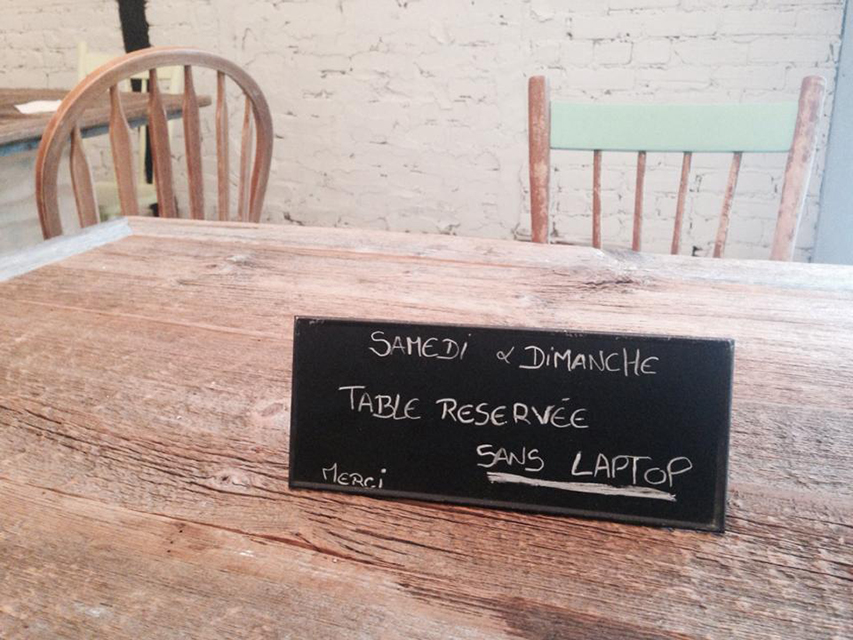 SAMEDi & DiMANCHE
TABLE RESERVÉE
SANS LAPTOP
MERCi